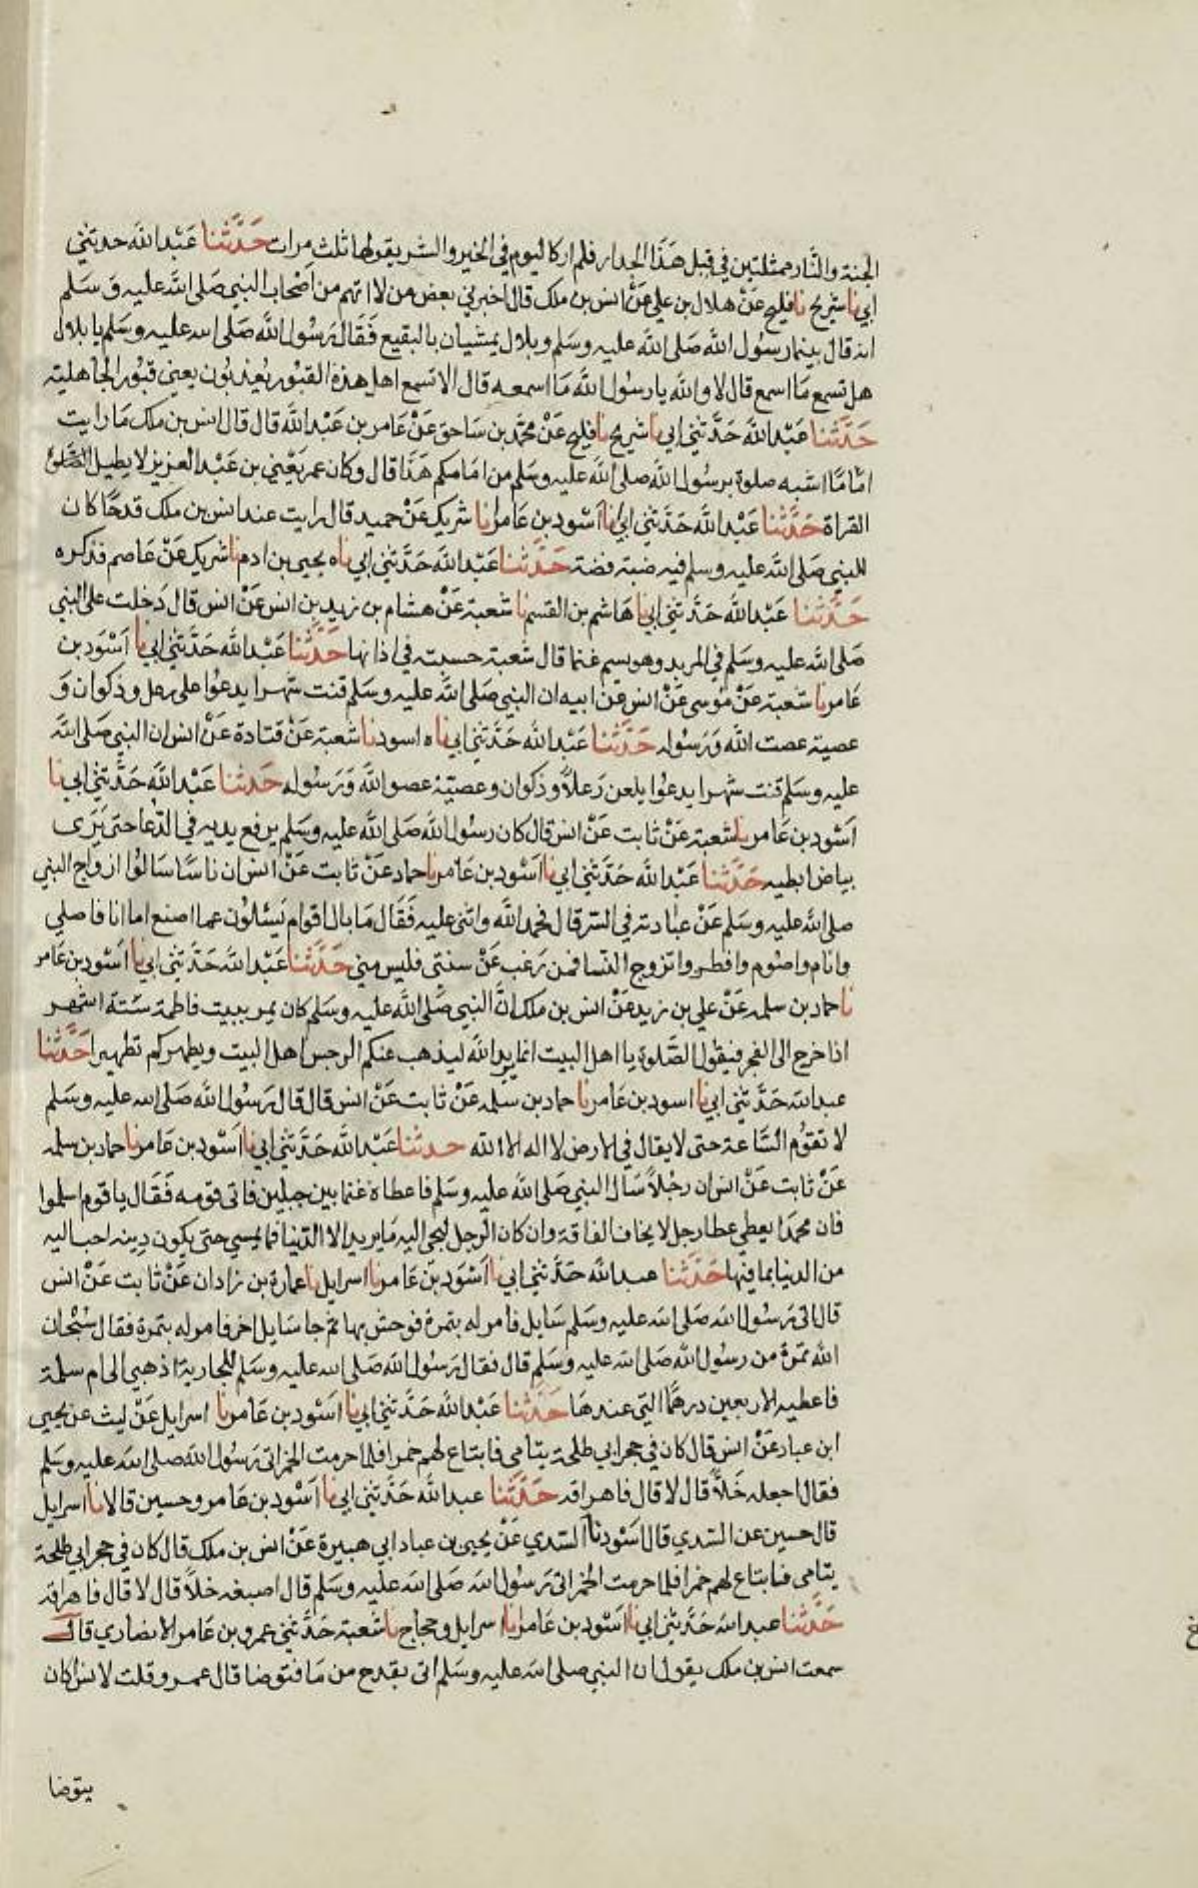 الجنة والنار ممثلتين في قبل هذا الجدار فلم ار كاليوم في الخير والشر يقولها ثلث مرات حدثنا عبد الله حدثني
ابي نا شريح نا فليح عن هلال بن علي عن انس بن ملك قال اخبرني بعض من لا اتهم من اصحاب النبي صلى الله عليه وسلم
انه قال بينما رسول الله صلى الله عليه وسلم وبلال يمشيان بالبقيع فقال رسول الله صلى الله عليه وسلم يا بلال
هل تسمع ما اسمع قال لا والله يا رسول الله ما اسمعه قال الا تسمع اهل هذه القبور يعذبون يعني قبور الجاهلية
حدثنا عبد الله حدثني ابي نا شريح نا فليح عن محمد بن ساحق عن عامر بن عبد الله قال قال انس بن ملك ما رايت
اماما اشبه صلوة برسول الله صلى الله عليه وسلم من امامكم هذا قال وكان عمر يعني بن عبد العزيز لا يطيل
القراة حدثنا عبد الله حدثني ابي نا اسود بن عامر نا شريك عن حميد قال رايت عند انس بن ملك قدحا كان
للنبي صلى الله عليه وسلم فيه ضبة فضة حدثنا عبد الله حدثني ابي ناه يحيى بن ادم نا شريك عن عاصم فذكره
حدثنا عبد الله حدثني ابي نا هاشم بن القسم نا شعبة عن هشام بن زيد بن انس عن انس قال دخلت على النبي
صلى الله عليه وسلم في المربد وهو يسم غنما قال شعبة حسبت في اذانها حدثنا عبد الله حدثني ابي نا اسود بن
عامر نا شعبة عن موسى عن انس عن ابيه ان النبي صلى الله عليه وسلم قنت شهرا يدعوا على رعل وذكوان و
عصية عصت الله ورسوله حدثنا عبد الله حدثني ابي ناه اسود نا شعبة عن قتادة عن انس ان النبي صلى الله
عليه وسلم قنت شهرا يدعوا يلعن رعلا وذكوان وعصية عصوا الله ورسوله حدثنا عبد الله حدثني ابي نا
اسود بن عامر نا شعبة عن ثابت عن انس قال كان رسول الله صلى الله عليه وسلم يرفع يديه في الدعا حتى يرى
بياض ابطيه حدثنا عبد الله حدثني ابي نا اسود بن عامر نا حماد عن ثابت عن انس ان ناسا سالوا ازواج النبي
صلى الله عليه وسلم عن عبادته في السر قال فحمد الله واثنى عليه فقال ما بال اقوام يسئلون عما اصنع اما انا فاصلي
وانام واصوم وافطر واتزوج النسا فمن رغب عن سنتي فليس مني حدثنا عبد الله حدثني ابي نا اسود بن عامر
نا حماد بن سلمه عن علي بن زيد عن انس بن ملك ان النبي صلى الله عليه وسلم كان يمر ببيت فاطمة ستة اشهر
اذا خرج الى الفجر فيقول الصلوة يا اهل البيت انما يريد الله ليذهب عنكم الرجس اهل البيت ويطهركم تطهيرا حدثنا
عبد الله حدثني ابي نا اسود بن عامر نا حماد بن سلمه عن ثابت عن انس قال قال رسول الله صلى الله عليه وسلم
لا تقوم الساعة حتى لا يقال في الارض لا اله الا الله حدثنا عبد الله حدثني ابي نا اسود بن عامر نا حماد بن سلمه
عن ثابت عن انس ان رجلا سال النبي صلى الله عليه وسلم فاعطاه غنما بين جبلين فاتى قومه فقال يا قوم اسلموا
فان محمدا يعطي عطا رجل لا يخاف الفاقة وان كان الرجل ليجي اليه ما يريد الا الدنيا فما يمسي حتى يكون دينه احب اليه
من الدنيا بما فيها حدثنا عبد الله حدثني ابي نا اسود بن عامر نا اسرايل نا عمارة بن زادان عن ثابت عن انس
قال اتى رسول الله صلى الله عليه وسلم سايل فامر له بتمرة فوحش بها ثم جا سايل اخر فامر له بتمرة فقال سبحان
الله تمرة من رسول الله صلى الله عليه وسلم قال فقال رسول الله صلى الله عليه وسلم للجارية اذهبي الى ام سلمة
فاعطيه الاربعين درهما التي عندها حدثنا عبد الله حدثني ابي نا اسود بن عامر نا اسرايل عن ليث عن يحيى
ابن عباد عن انس قال كان في حجر ابي طلحة يتامى فابتاع لهم خمرا فلما حرمت الخمر اتى رسول الله صلى الله عليه وسلم
فقال اجعله خلا قال لا قال فاهراقه حدثنا عبد الله حدثني ابي نا اسود بن عامر وحسين قالا نا اسرايل
قال حسين عن السدي قال اسود نا السدي عن يحيى بن عباد ابي هبيرة عن انس بن ملك قال كان في حجر ابي طلحة
يتامى فابتاع لهم خمرا فلما حرمت الخمر اتى رسول الله صلى الله عليه وسلم قال اصنعه خلا قال لا قال فاهراقه
حدثنا عبد الله حدثني ابي نا اسود بن عامر نا اسرايل وحجاج نا شعبة حدثني عمرو بن عامر الانصاري قال
سمعت انس بن ملك يقول ان النبي صلى الله عليه وسلم اتى بقدح من ما فتوضا قال عمرو قلت لانس اكان
يتوضا